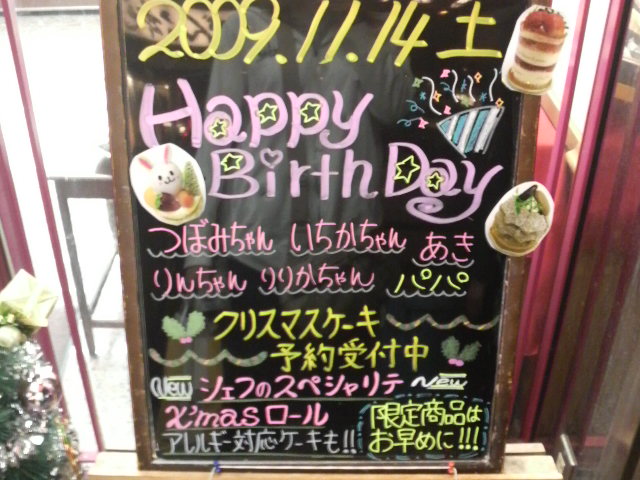 2009.11.14 土
Happy
BirthDay
つぼみちゃん いちかちゃん あき
りんちゃん りりかちゃん パパ
クリスマスケーキ
予約受付中
New シェフのスペシャリテ New
X'masロール
アレルギー対応ケーキも!!
限定商品は
お早めに!!!